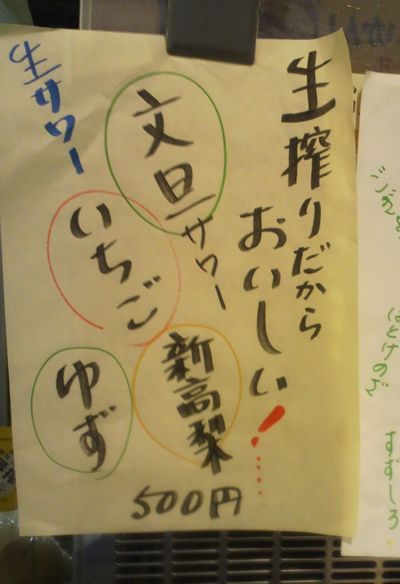 生搾りだから
おいしい!
文旦サワー
いちご
新高梨
ゆず
500円
生サワー
ほとけのざ
すずしろ